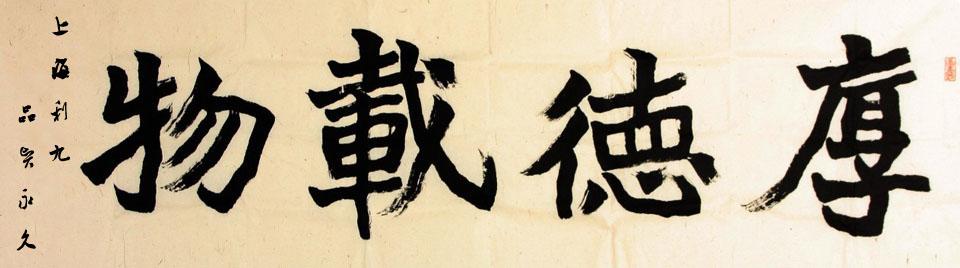 厚德載物
上海利九
品质永久